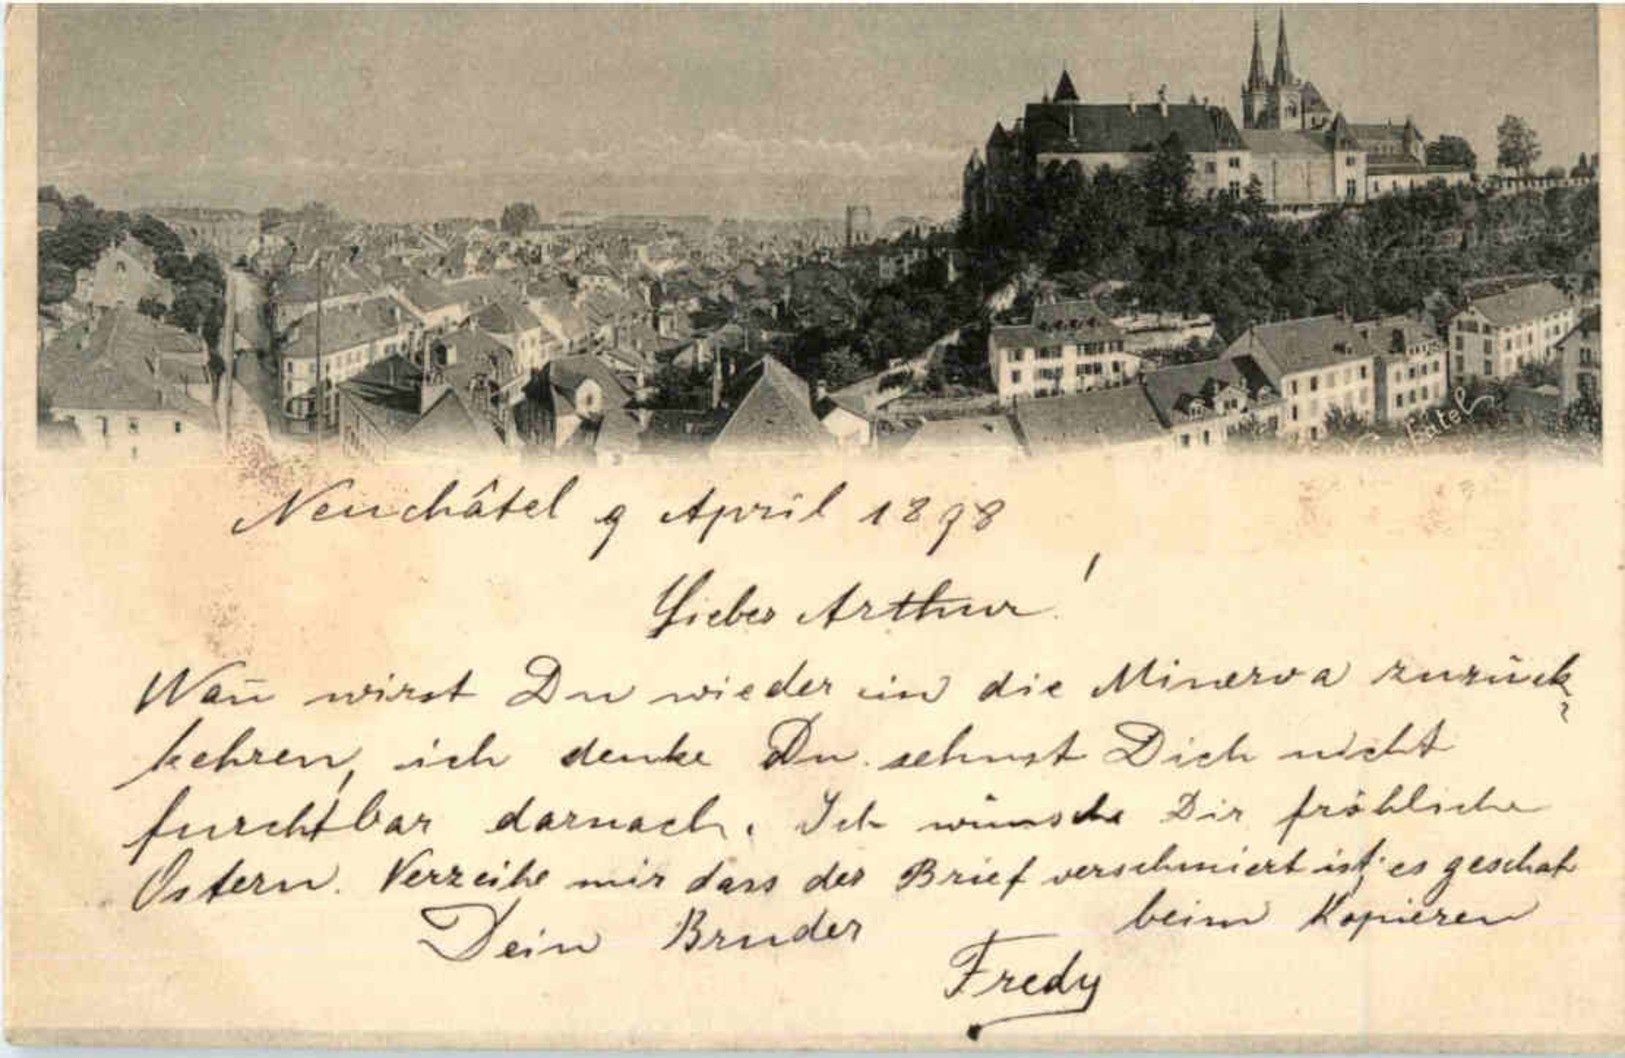 Neuchâtel
Neuchâtel 9 April 1898
Lieber Arthur!
Wan̄ wirst Du wieder in die Minerva zurück
kehren, ich denke Du sehnst Dich nicht
furchtbar darnach. Ich wünsche Dir fröhliche
Ostern. Verzeihe mir dass der Brief verschmiert ist, es geschah
beim Kopieren
Dein Bruder
Fredy